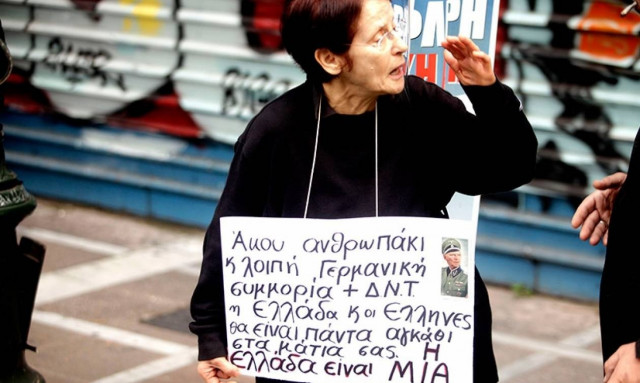 ΛΑΡΗ
ΚΗ
Άκου ανθρωπάκι
κ λοιπή Γερμανική
συμμορία + Δ.Ν.Τ.
η Ελλάδα κ οι Ελληνες
θα είναι πάντα αγκάθι
στα μάτια σας. Η
Ελλάδα είναι ΜΙΑ